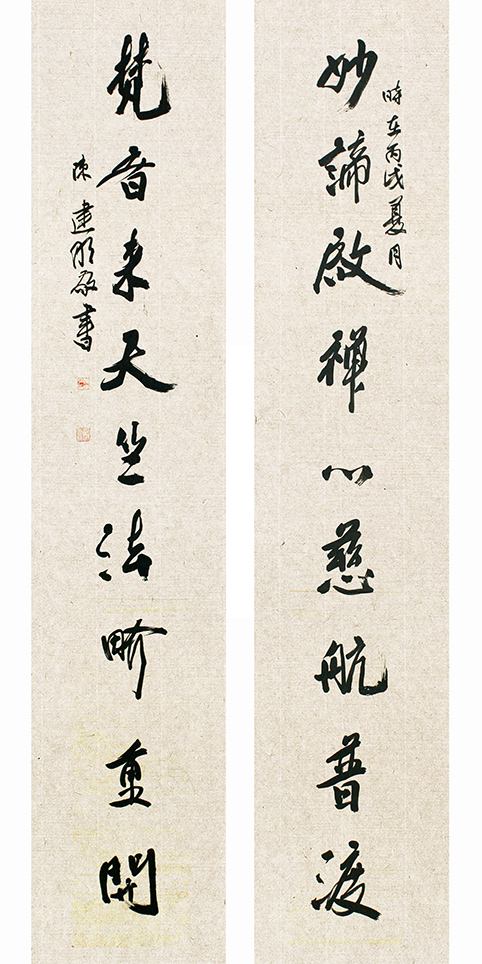 妙諦啟禪心慈航普渡
時在丙戌夏月
梵音来天竺法界重開
陳建明敬書